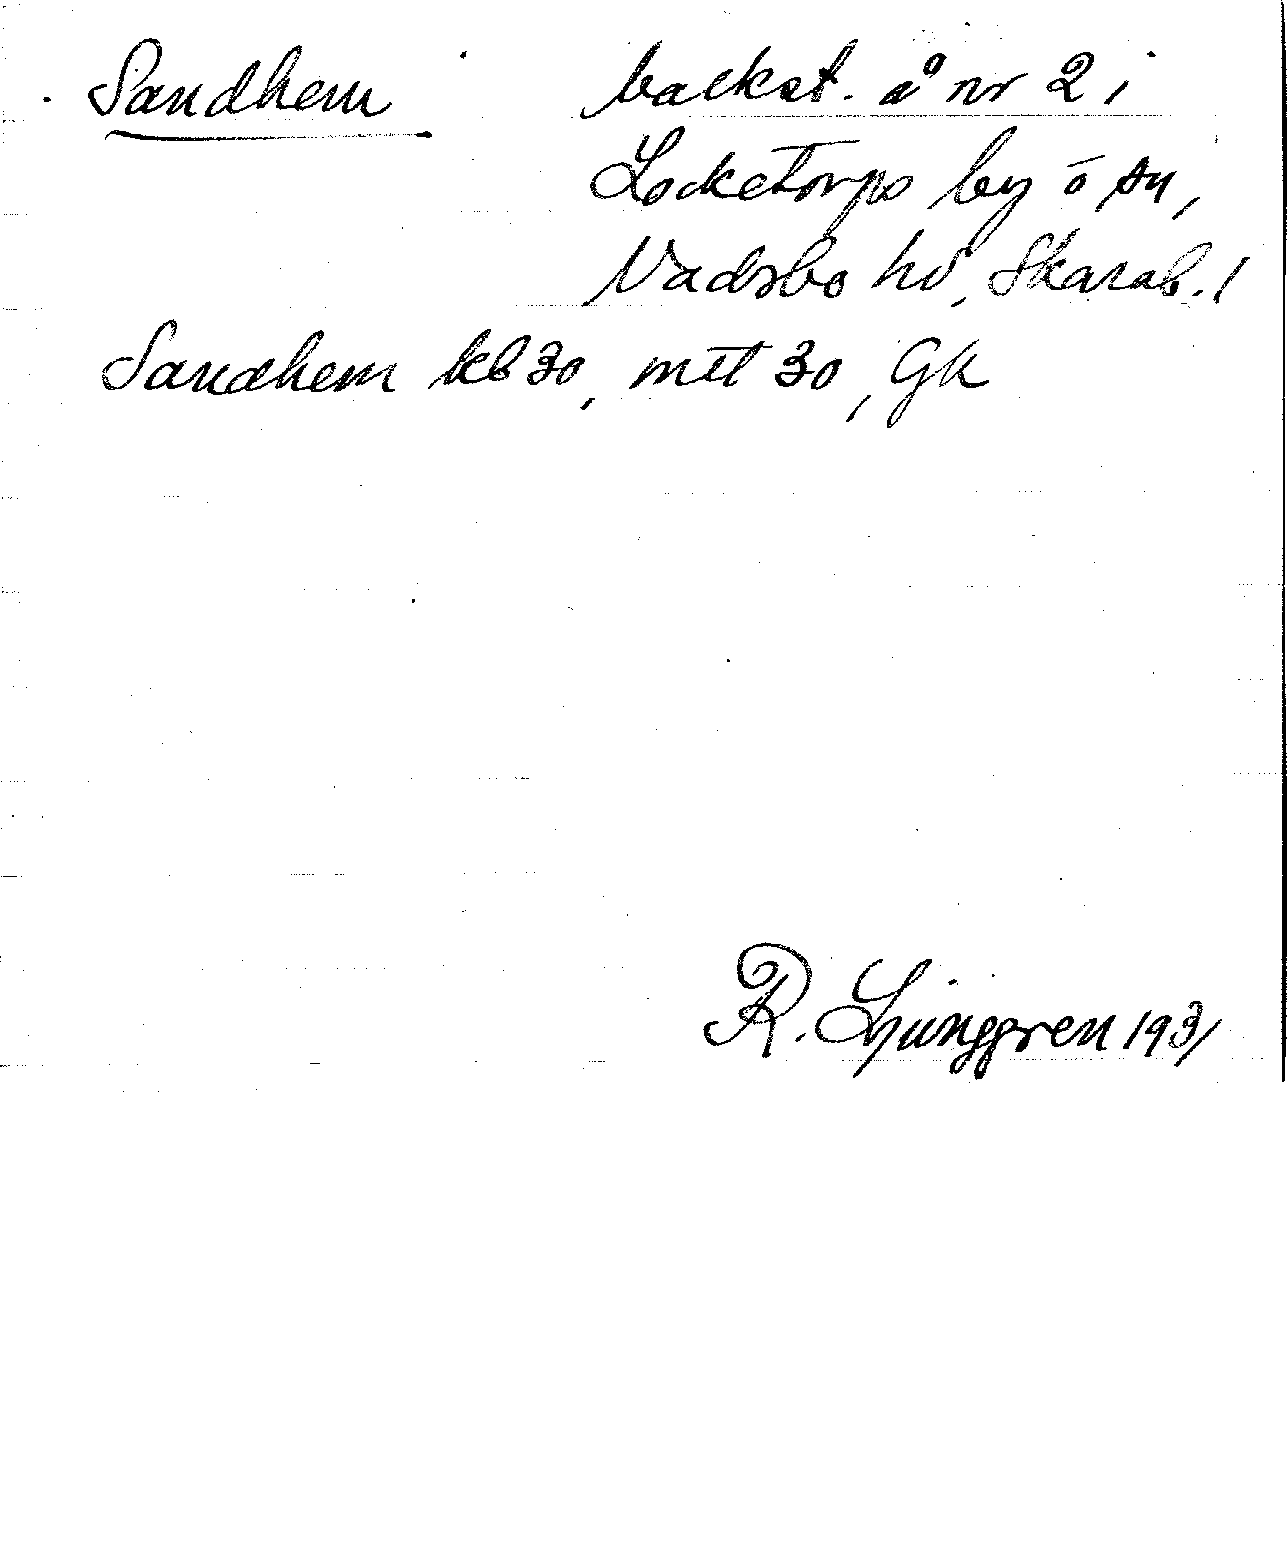 Sandhem backst. å nr 2 i
Locketorps by o sn,
Vadsbo hd, Skarab. l
Sandhem kb 30, mtl 30, GK
R. Ljunggren 1931